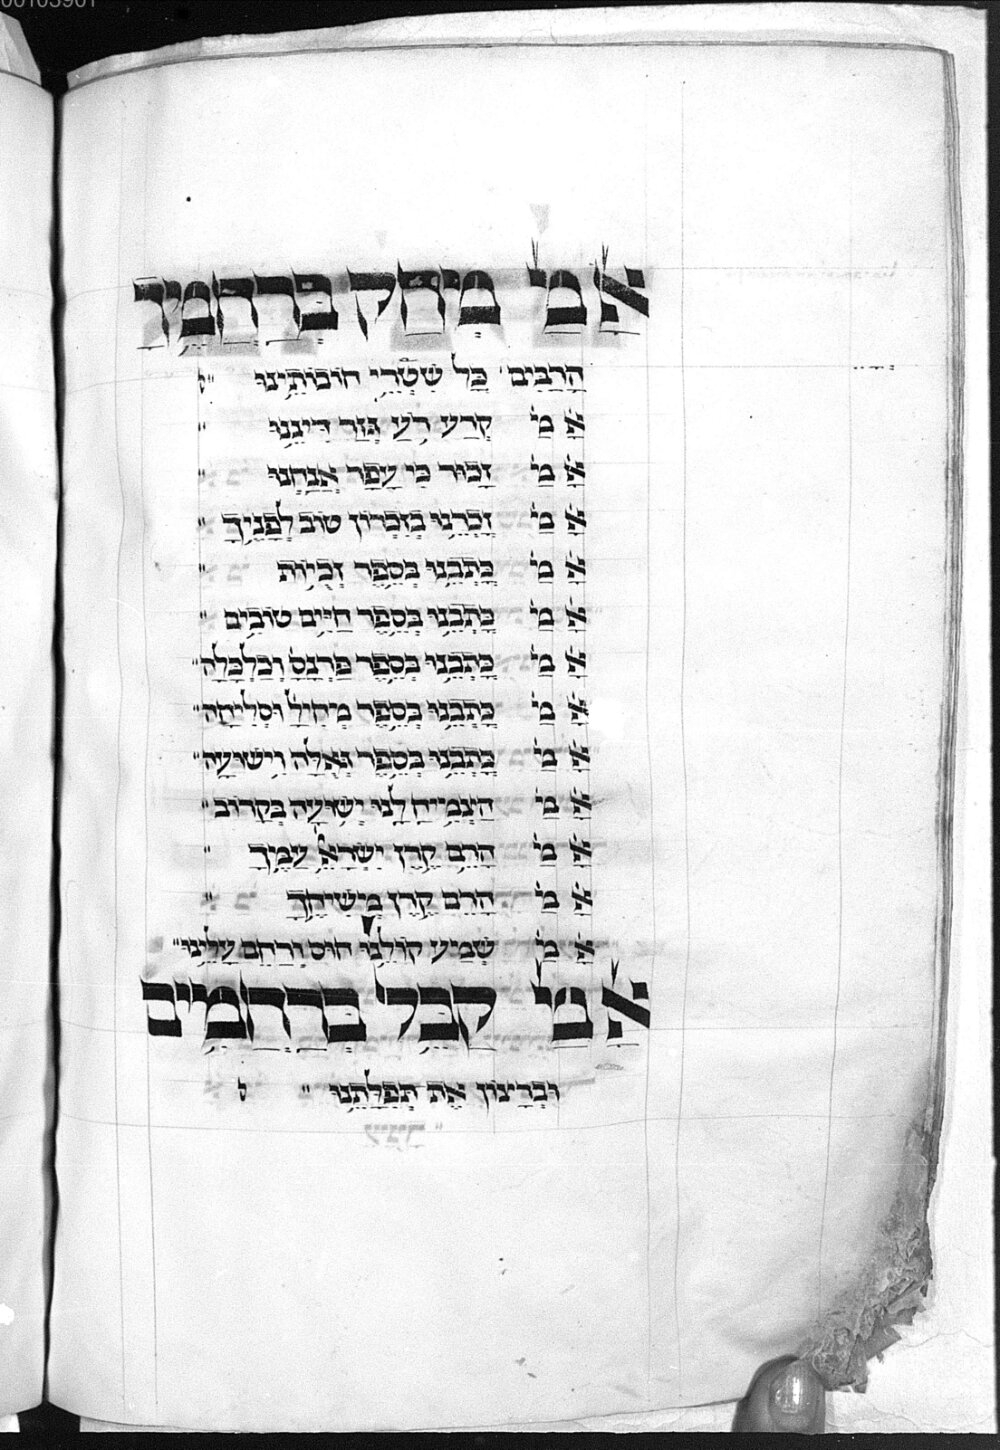 אָ מַ' מְחַק בְּרַחֲמֶיךָ
הָרַבִּים' כָּל שִׁטְרֵי חוֹבוֹתֵינוּ
אָ מַ' קְרַע רֹעַ גְּזַר דִּינֵנוּ
אָ מַ' זְכוֹר כִּי עָפָר אֲנָחְנוּ
אָ מַ' זָכְרֵנוּ בְּזִכְרוֹן טוֹב לְפָנֶיךָ
אָ מַ' כָּתְבֵנוּ בְּסֵפֶר זְכֻיּוֹת
אָ מַ' כָּתְבֵנוּ בְּסֵפֶר חַיִּים טוֹבִים
אָ מַ' כָּתְבֵנוּ בְּסֵפֶר פַּרְנָסָ' וְכַלְכָּלָה
אָ מַ' כָּתְבֵנוּ בְּסֵפֶר מְחִילָ' וּסְלִיחָה
אָ מַ' כָּתְבֵנוּ בְּסֵפֶר גְּאֻלָּה וִישׁוּעָה
אָ מַ' הַצְמִיח לָנוּ יְשׁוּעָה בְּקָרוֹב
אָ מַ' הָרֵם קֶרֶן יִשְׂרָאֵ' עַמֶּךָ
אָ מַ' הָרֵם קֶרֶן מְשִׁיחֶךָ
אָ מַ' שְׁמַע קוֹלֵנוּ חוּס וְרַחֵם עָלֵינוּ
אָ מַ' קַבֵּל בְּרַחֲמִים
וּבְרָצוֹן אֶת תְּפִלָּתֵנוּ